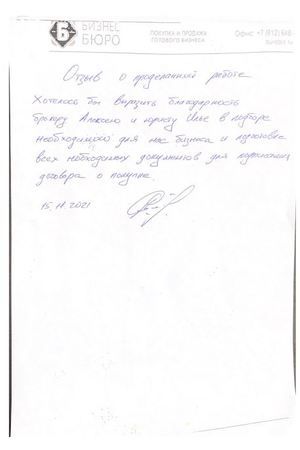 БИЗНЕС
БЮРО
ПОКУПКА И ПРОДАЖА
ГОТОВОГО БИЗНЕСА
Офис: +7 (812) 648
Отзыв о проделанной работе
Хотелось бы выразить благодарность
брокеру Алексею и юристу Илье в подборе
необходимого для нас бизнеса и
всех необходимых документов для подписания
договора о покупке
15.11.2021